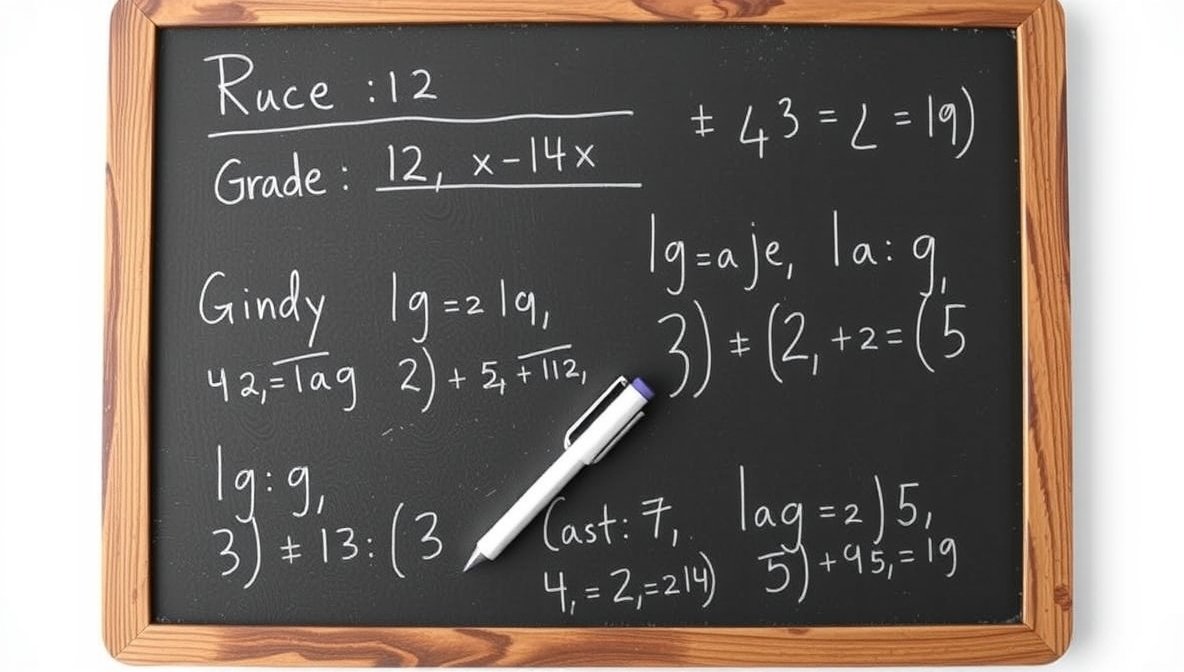 Ruce : 12
Grade : 12, x-14x
Gindy lg = 2 lq,
42,= Tag 2) + 5, + 112,
lg: g,
3) ± 13: (3
± 43 = 2 = 19)
lg = a je, la: g,
3) ± (2, +2 = (5
Cast: 7, lag = 2) 5,
4, = 2,=214) 5) + 95,= 19